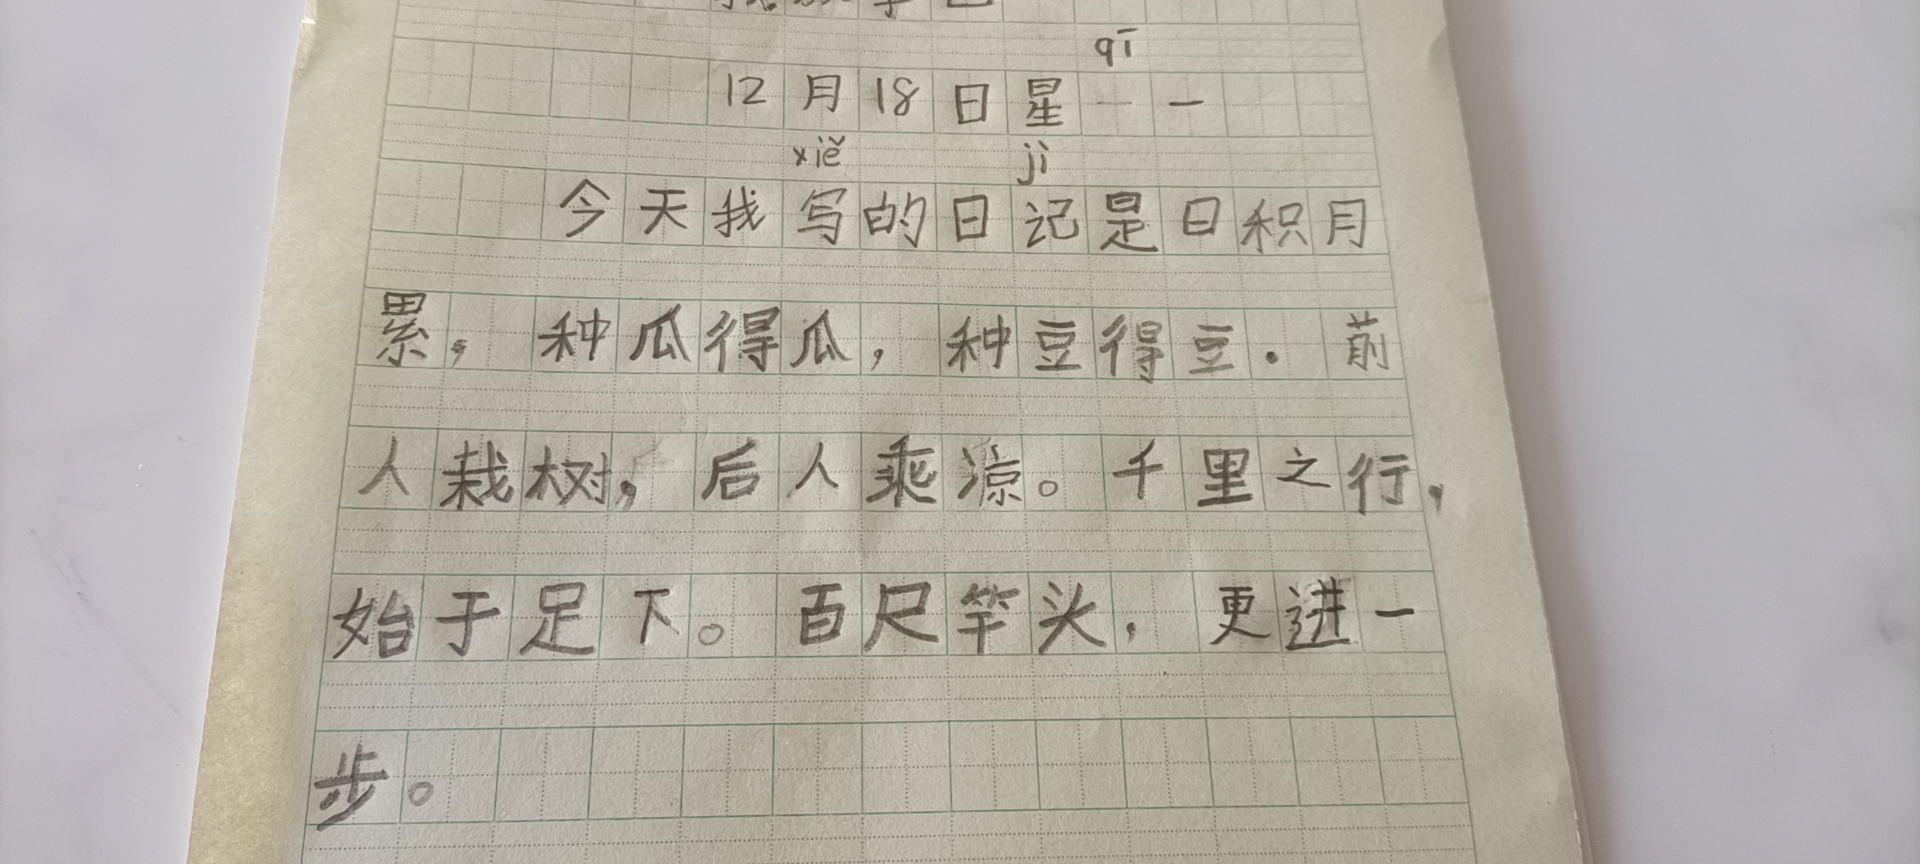 qī
12月18日星一一
xiě jì
今天我写的日记是日积月
累，种瓜得瓜，种豆得豆．前
人栽树，后人乘凉。千里之行，
始于足下。百尺竿头，更进一
步。